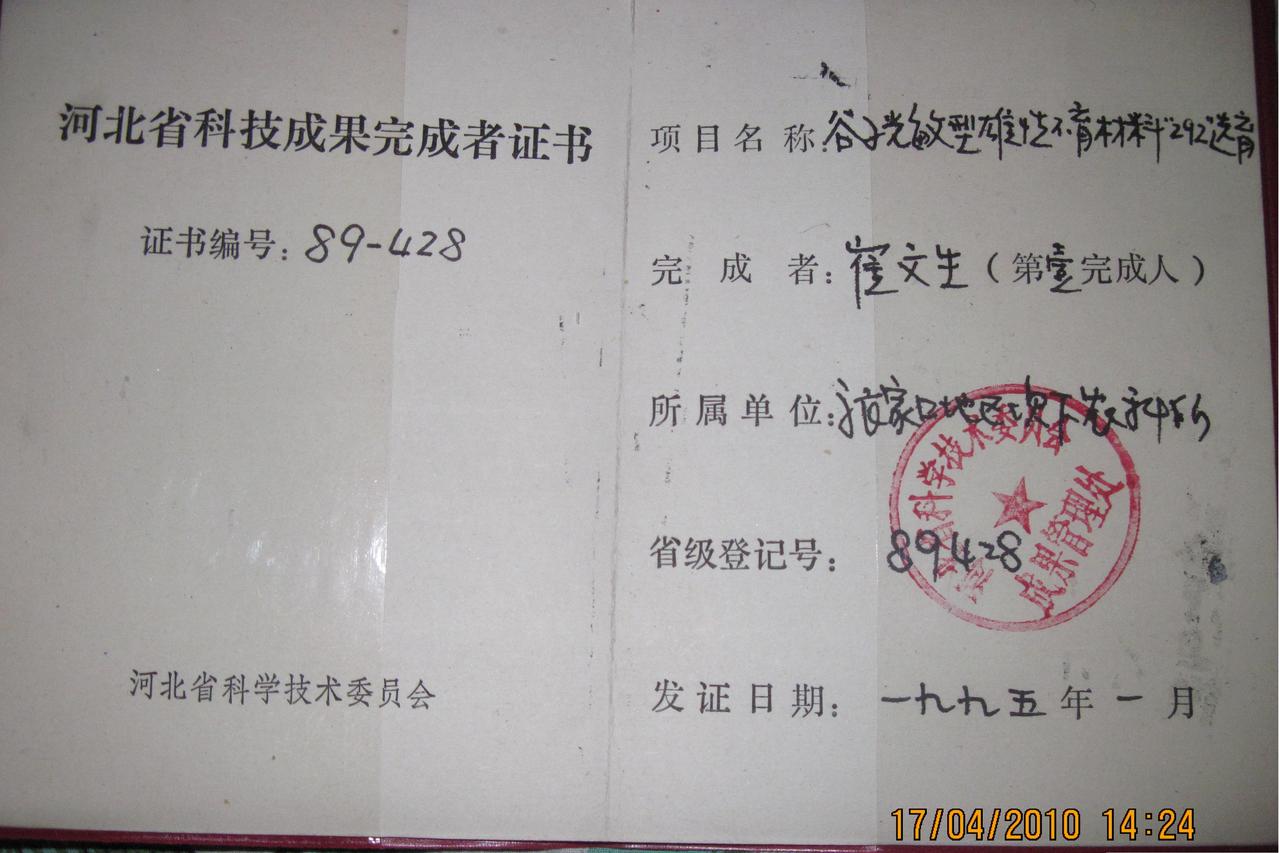 河北省科技成果完成者证书
证书编号：89-428
河北省科学技术委员会
项目名称：谷子光敏型雄性不育材料“292”选育
完成者：崔文生（第壹完成人）
所属单位：张家口地区坝下农科所
省级登记号：89428
发证日期：一九九五年一月
省科学技术委员会
成果管理处
17/04/2010 14:24